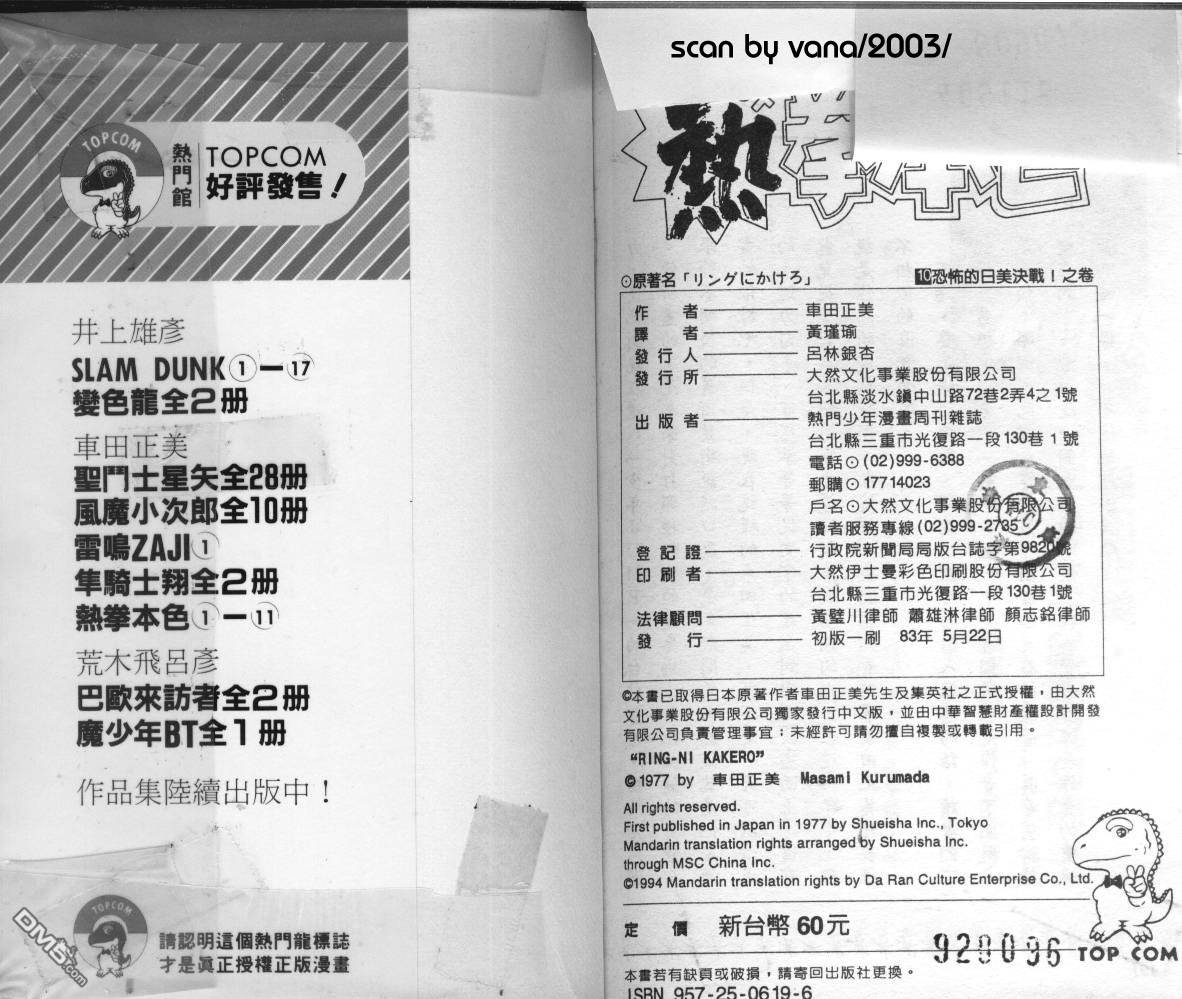 TOPCOM
熱門館
TOPCOM
好評發售！
井上雄彥
SLAM DUNK①—⑰
變色龍全2册
車田正美
聖鬥士星矢全28册
風魔小次郎全10册
雷鳴ZAJI①
隼騎士翔全2册
熱拳本色①—⑪
荒木飛呂彥
巴歐來訪者全2册
魔少年BT全1册
作品集陸續出版中！
TOPCOM
請認明這個熱門龍標誌
才是眞正授權正版漫畫
DM5.com
scan by vana/2003/
熱拳本色
⊙原著名「リングにかけろ」
10恐怖的日美決戰！之卷
作者——車田正美
譯者——黃瑾瑜
發行人——呂林銀杏
發行所——大然文化事業股份有限公司
台北縣淡水鎭中山路72巷2弄4之1號
出版者——熱門少年漫畫周刊雜誌
台北縣三重市光復路一段130巷1號
電話⊙(02)999-6388
郵購⊙17714023
戶名⊙大然文化事業股份有限公司
讀者服務專線(02)999-2735
登記證——行政院新聞局局版台誌字第9820號
印刷者——大然伊士曼彩色印刷股份有限公司
台北縣三重市光復路一段130巷1號
法律顧問——黃璧川律師 蕭雄淋律師 顏志銘律師
發行——初版一刷 83年 5月22日
©本書已取得日本原著作者車田正美先生及集英社之正式授權，由大然
文化事業股份有限公司獨家發行中文版，並由中華智慧財產權設計開發
有限公司負責管理事宜；未經許可請勿擅自複製或轉載引用。
“RING-NI KAKERO”
©1977 by 車田正美 Masami Kurumada
All rights reserved.
First published in Japan in 1977 by Shueisha Inc., Tokyo
Mandarin translation rights arranged by Shueisha Inc.
through MSC China Inc.
©1994 Mandarin translation rights by Da Ran Culture Enterprise Co., Ltd.
定價 新台幣60元
920096
TOP COM
本書若有缺頁或破損，請寄回出版社更換。
ISBN 957-25-0619-6